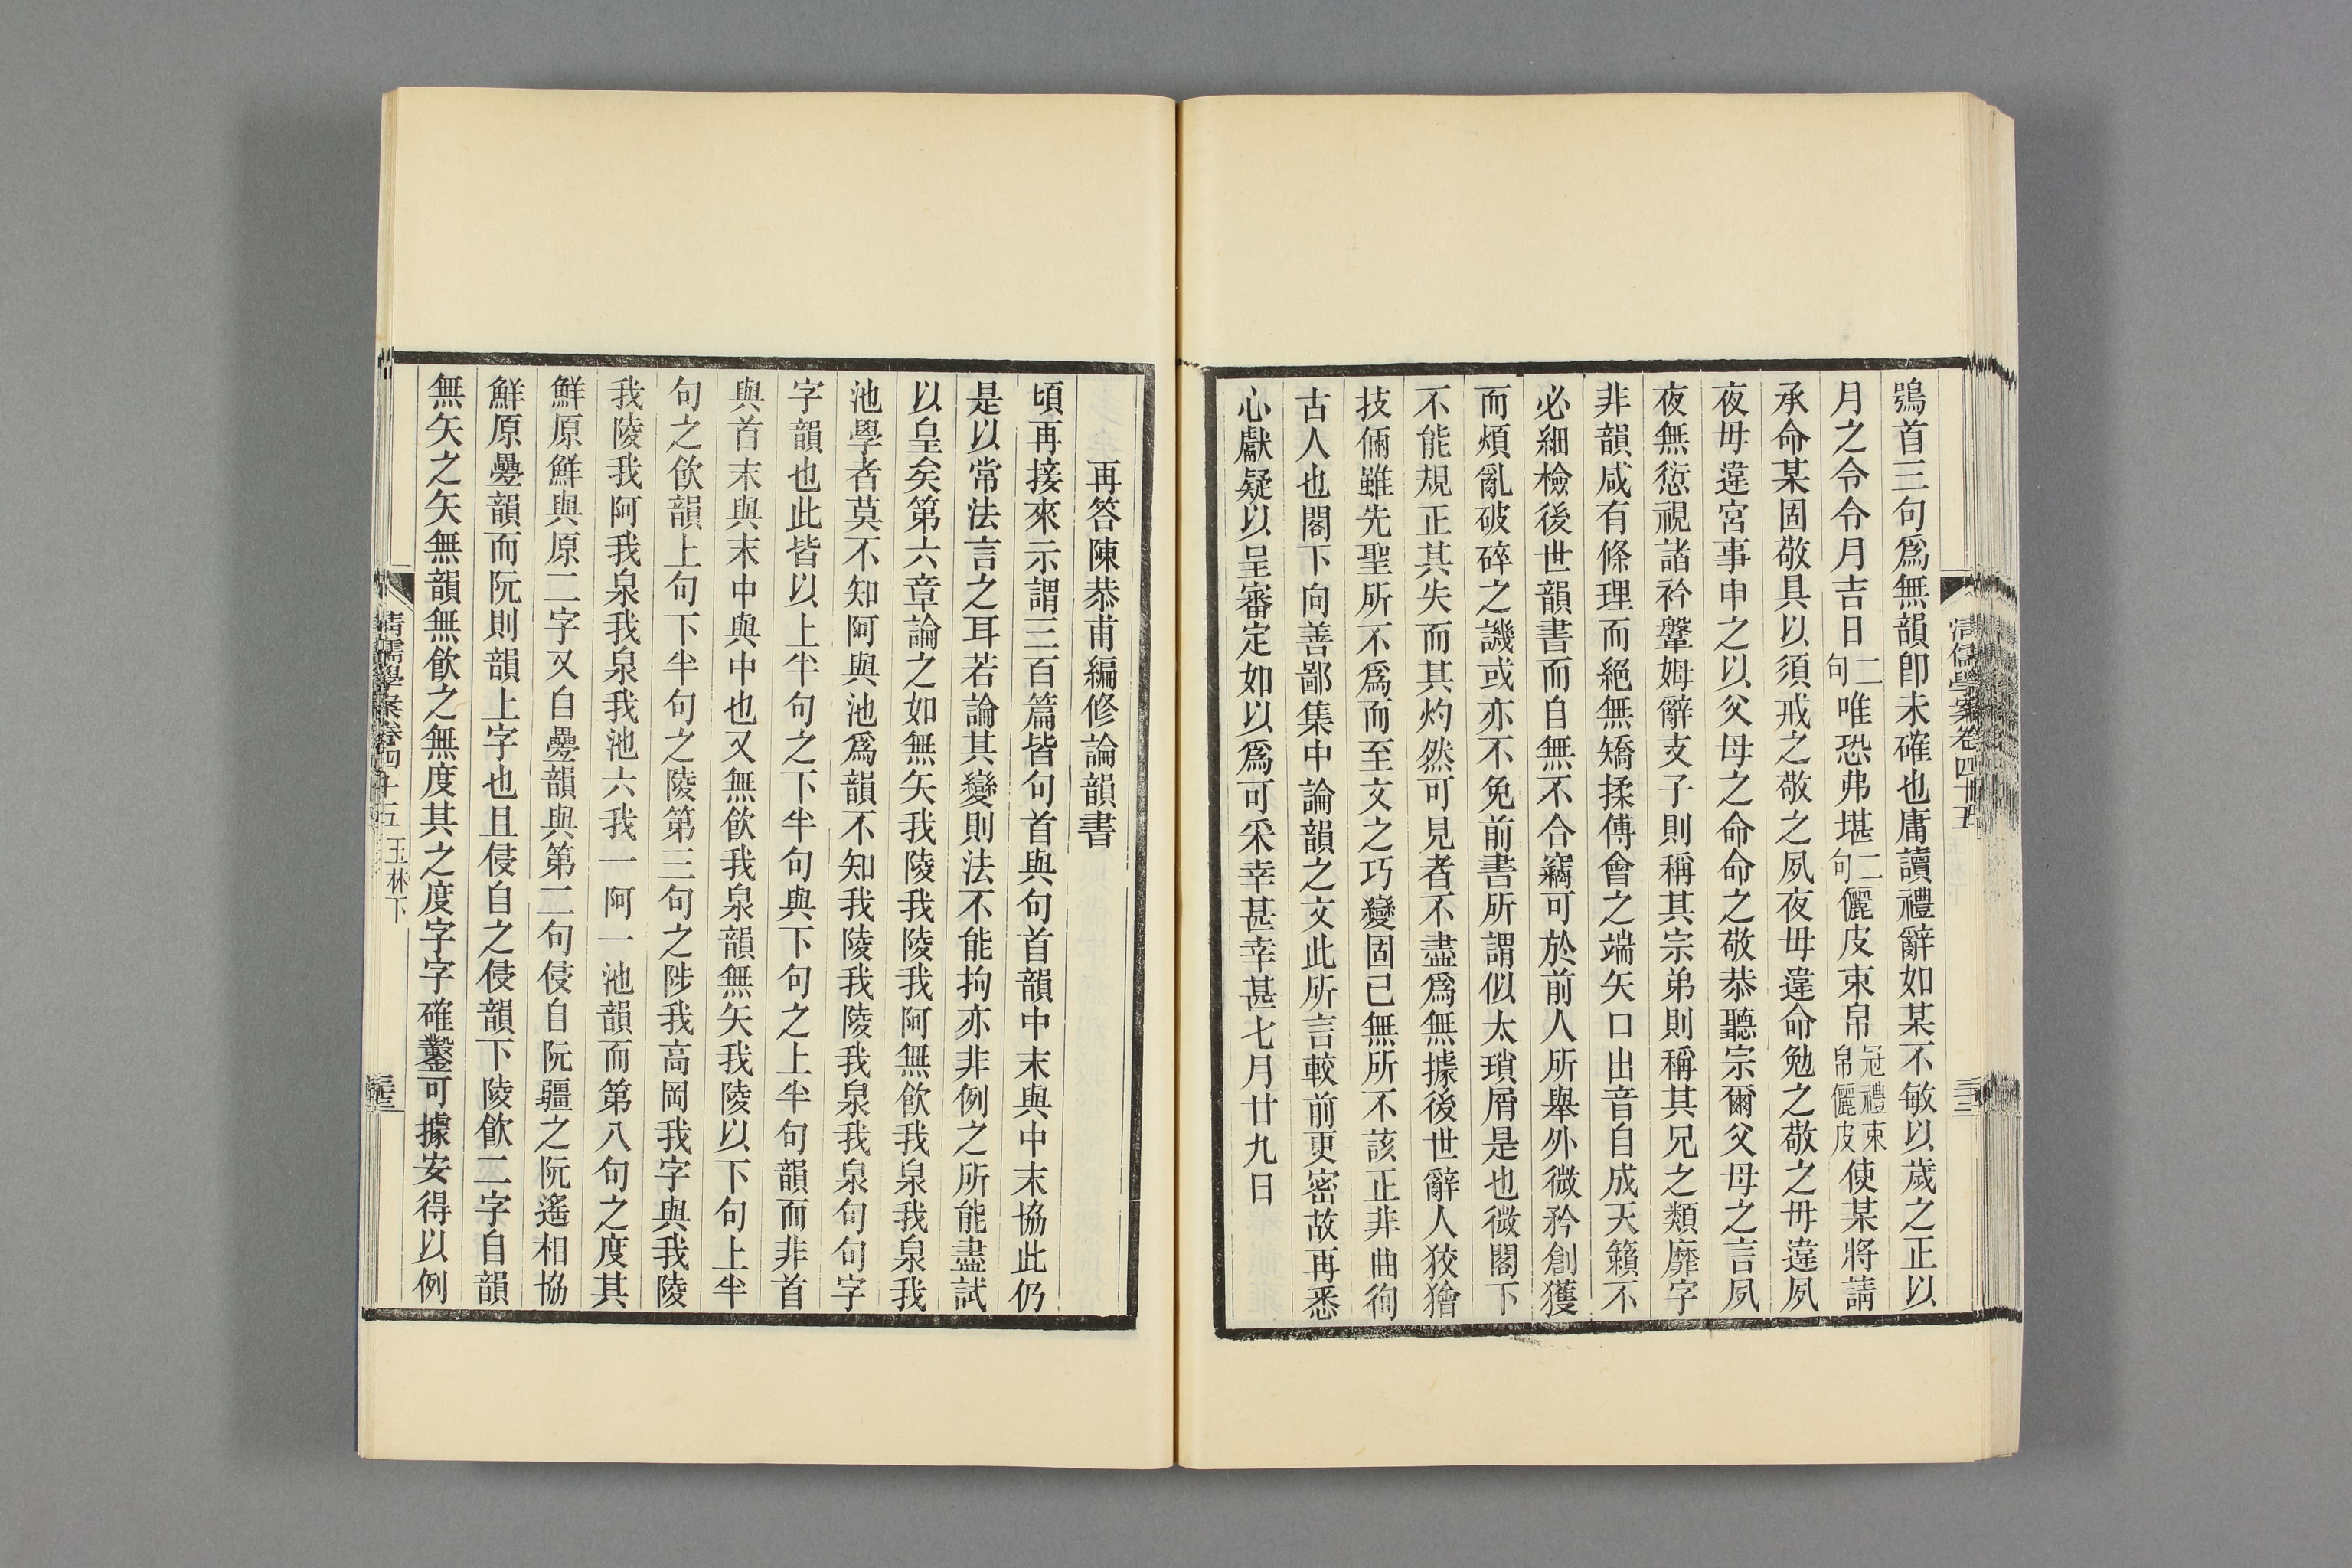 鴞首三句爲無韻卽未確也庸讀禮辭如某不敏以歲之正以
月之令令月吉日二句唯恐弗堪二句儷皮束帛冠禮束帛儷皮使某將請
承命某固敬具以須戒之敬之夙夜毋違命勉之敬之毋違夙
夜毋違宮事申之以父母之命命之敬恭聽宗爾父母之言夙
夜無愆視諸衿鞶姆辭支子則稱其宗弟則稱其兄之類靡字
非韻咸有條理而絕無矯揉傅會之端矢口出音自成天籟不
必細檢後世韻書而自無不合竊可於前人所舉外微矜創獲
而煩亂破碎之譏或亦不免前書所謂似太瑣屑是也微閣下
不能規正其失而其灼然可見者不盡爲無據後世辭人狡獪
技倆雖先聖所不爲而至文之巧變固已無所不該正非曲徇
古人也閣下向善鄙集中論韻之文此所言較前更密故再悉
心獻疑以呈審定如以爲可采幸甚幸甚七月廿九日
清儒學案卷四十五
再答陳恭甫編修論韻書
頃再接來示謂三百篇皆句首與句首韻中末與中末協此仍
是以常法言之耳若論其變則法不能拘亦非例之所能盡試
以皇矣第六章論之如無矢我陵我陵我阿無飮我泉我泉我
池學者莫不知阿與池爲韻不知我陵我陵我泉我泉句句字
字韻也此皆以上半句之下半句與下句之上半句韻而非首
與首末與末中與中也又無飮我泉韻無矢我陵以下句上半
句之飮韻上句下半句之陵第三句之陟我高岡我字與我陵
我陵我阿我泉我泉我池六我一阿一池韻而第八句之度其
鮮原鮮與原二字又自疊韻與第二句侵自阮疆之阮遙相協
鮮原疊韻而阮則韻上字也且侵自之侵韻下陵飮二字自韻
無矢之矢無韻無飮之無度其之度字字確鑿可據安得以例
清儒學案卷四十五 玉林下